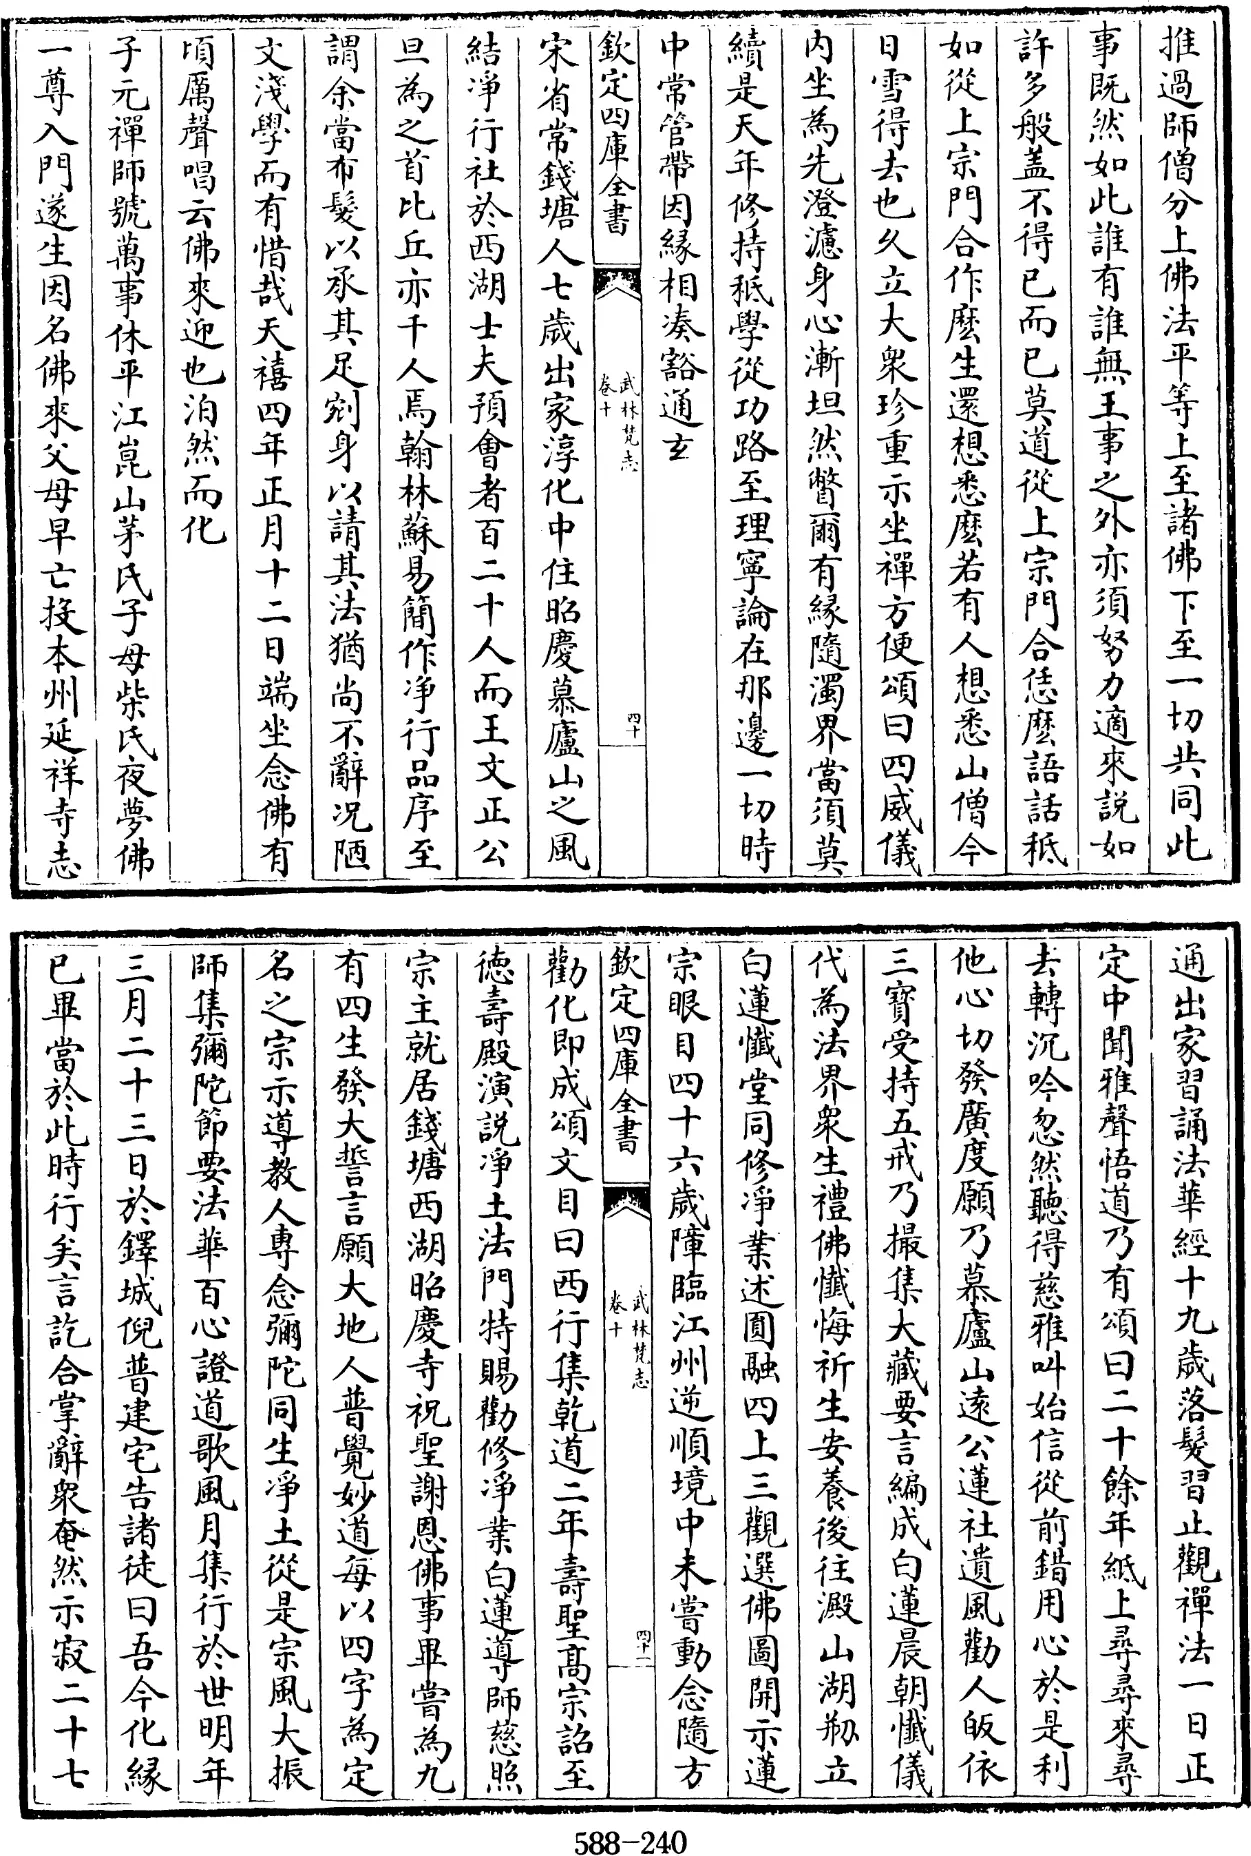 推過師僧分上佛法平等上至諸佛下至一切共同此
事既然如此誰有誰無王事之外亦須努力適來說如
許多般盖不得已而已莫道從上宗門合恁麽語話秪
如從上宗門合作麽生還想悉麽若有人想悉山僧今
日雪得去也久立大衆珍重示坐禪方便頌曰四威儀
内坐為先澄濾身心漸坦然瞥爾有緣隨濁界當須莫
續是天年修持秪學從功路至理寧論在那邊一切時
中常管帶因緣相凑豁通玄
欽定四庫全書
武林梵志
卷十
四十
宋省常錢塘人七歲出家淳化中住昭慶慕廬山之風
結淨行社於西湖士夫預會者百二十人而王文正公
旦為之首比丘亦千人焉翰林蘇易簡作淨行品序至
謂余當布髮以承其足剜身以請其法猶尚不辭况陋
文淺學而有惜哉天禧四年正月十二日端坐念佛有
頃厲聲唱云佛來迎也泊然而化
子元禪師號萬事休平江崑山茅氏子母柴氏夜夢佛
一尊入門遂生因名佛來父母早亡投本州延祥寺志
通出家習誦法華經十九歲落髮習止觀禪法一日正
定中聞雅聲悟道乃有頌曰二十餘年紙上尋尋來尋
去轉沉吟忽然聽得慈雅叫始信從前錯用心於是利
他心切發廣度願乃慕廬山遠公蓮社遺風勸人皈依
三寶受持五戒乃撮集大藏要言編成白蓮晨朝懺儀
代為法界衆生禮佛懺悔祈生安養後往澱山湖剏立
白蓮懺堂同修淨業述圓融四土三觀選佛圖開示蓮
宗眼目四十六歲障臨江州逆順境中未嘗動念隨方
欽定四庫全書
武林梵志
卷十
四十一
勸化即成頌文目曰西行集乾道二年壽聖高宗詔至
德壽殿演說淨土法門特賜勸修淨業白蓮導師慈照
宗主就居錢塘西湖昭慶寺祝聖謝恩佛事畢嘗為九
有四生發大誓言願大地人普覺妙道每以四字為定
名之宗示導教人專念彌陀同生淨土從是宗風大振
師集彌陀節要法華百心證道歌風月集行於世明年
三月二十三日於鐸城倪普建宅告諸徒曰吾今化緣
已畢當於此時行矣言訖合掌辭衆奄然示寂二十七
588-240